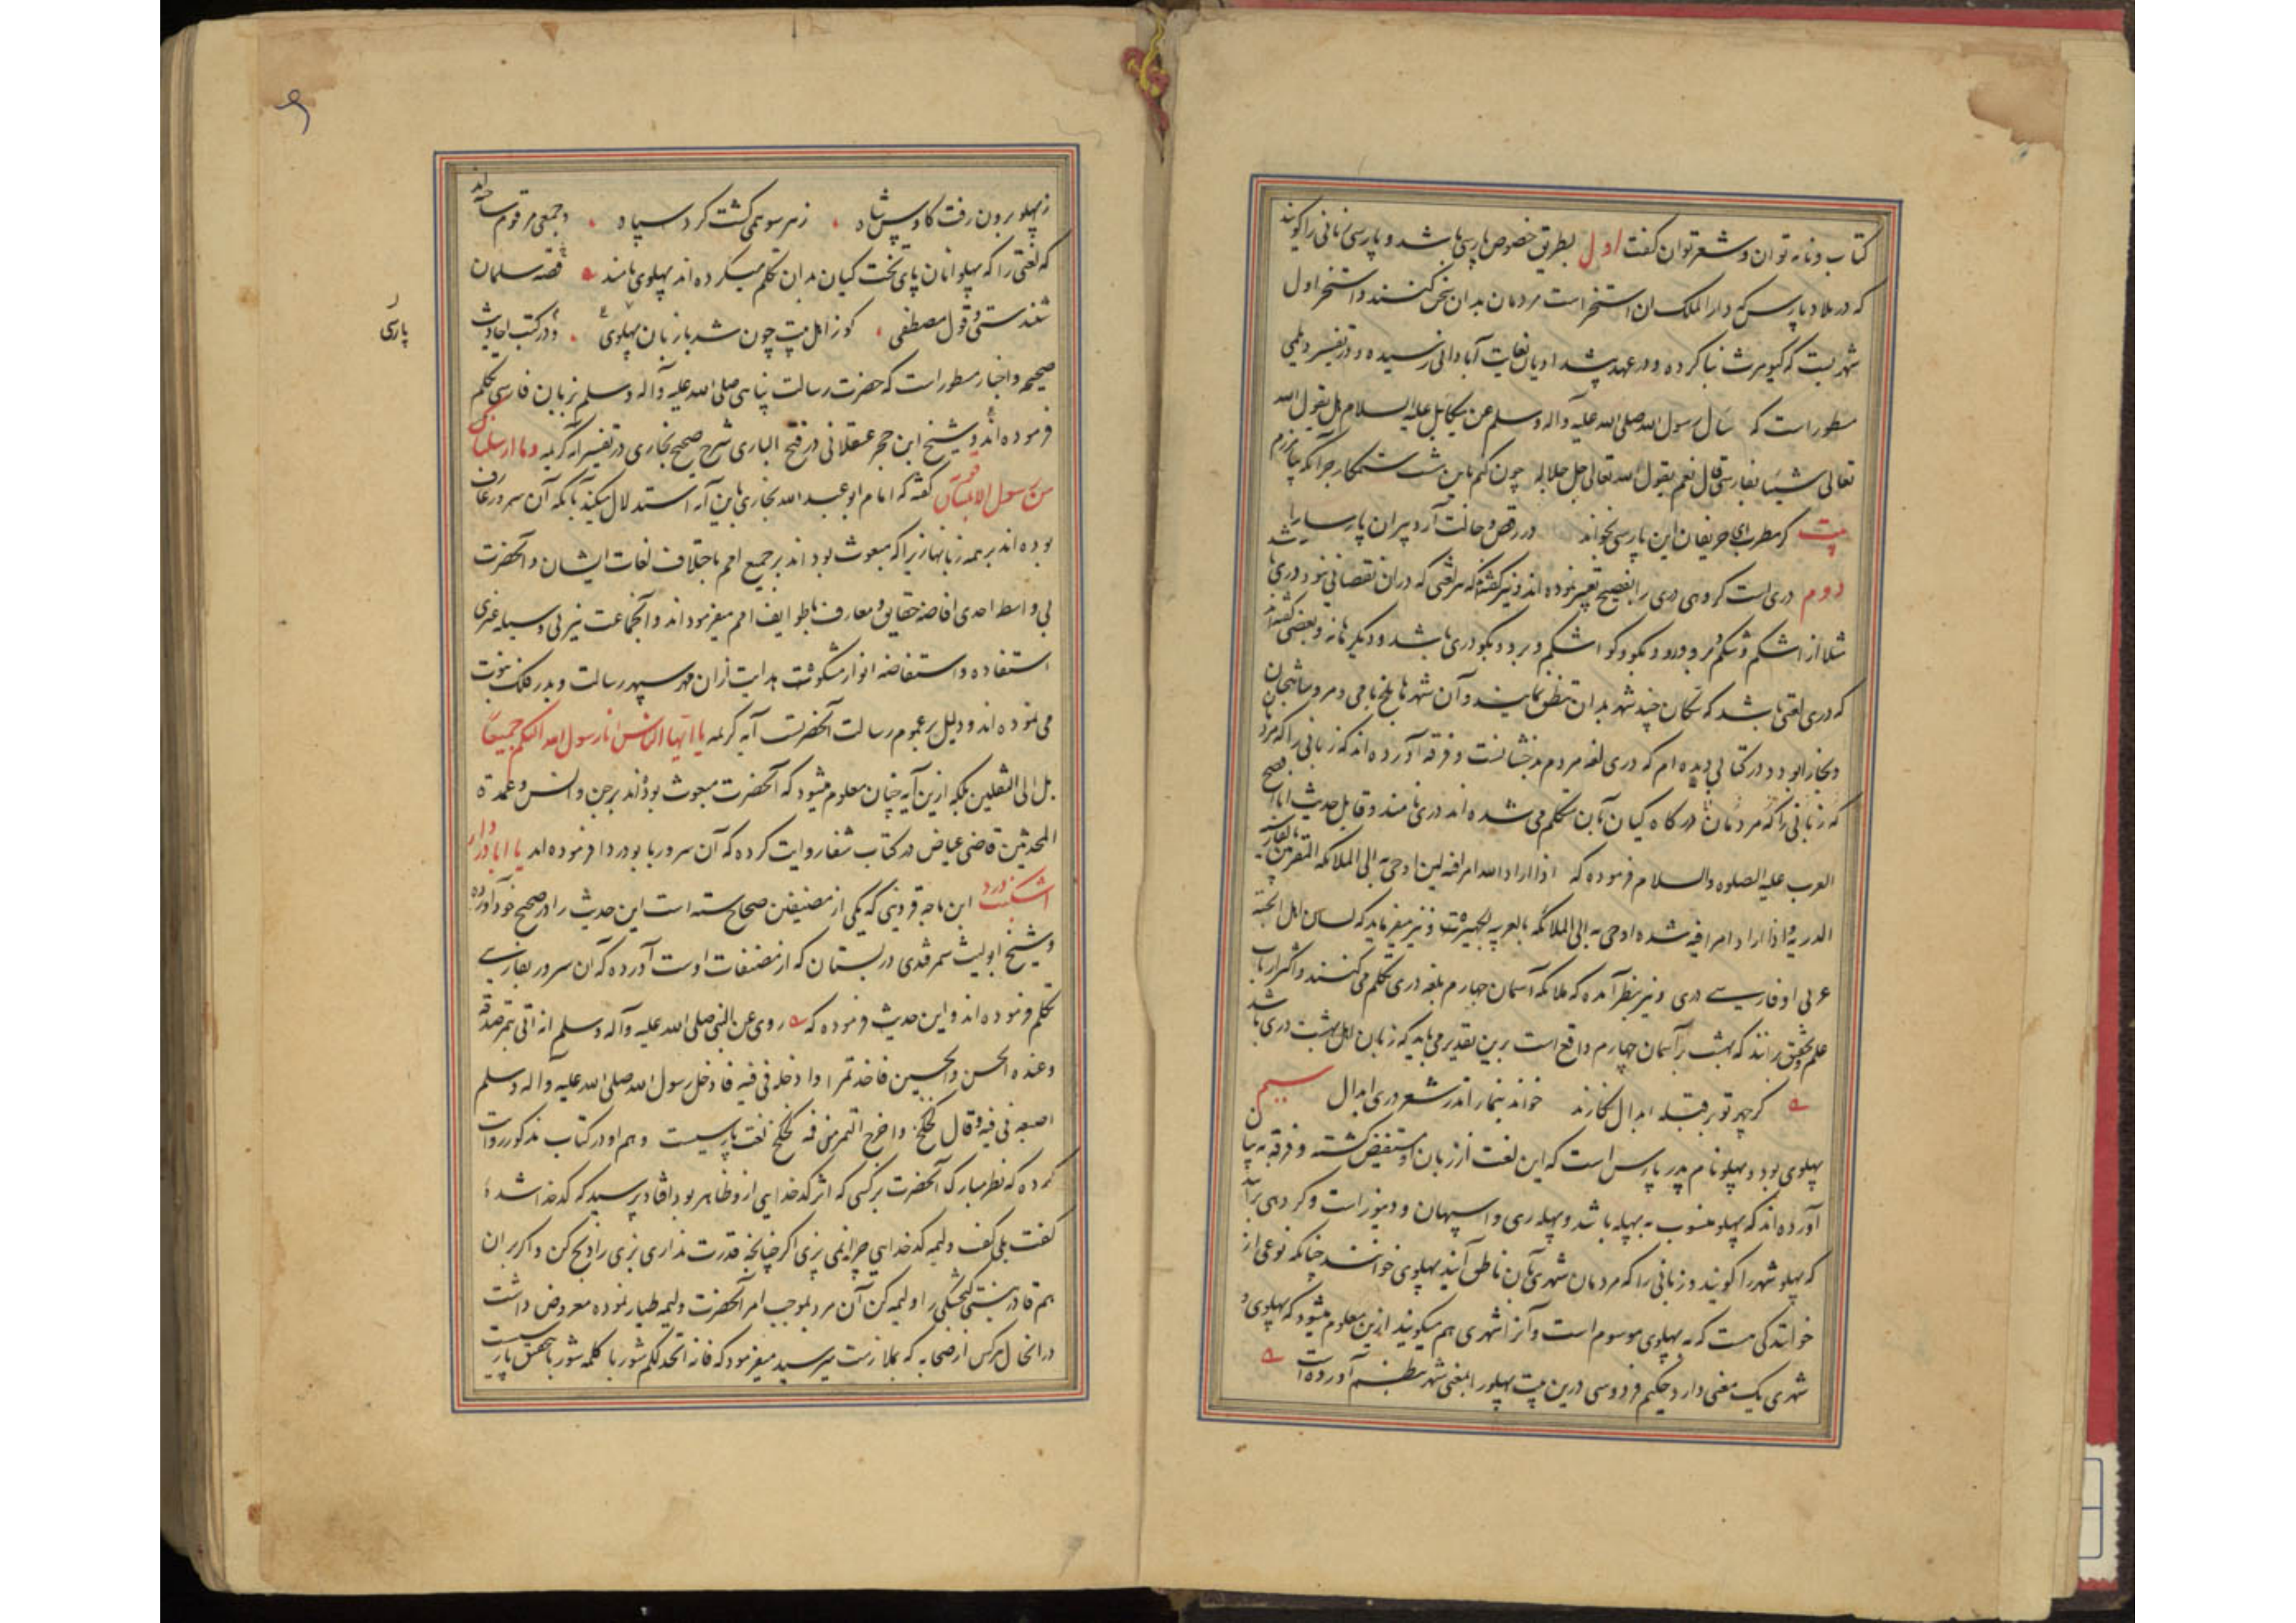 کتاب و نامه توان و شعر توان گفت اول بطریق خصوص پارسی باشد و پارسی زبانی را گویند
که در بلاد پارس که دار الملک ان استخر است مردمان بدان سخن کنند و استخر اول
شهریست که کیومرث بنا کرده و در عهد پیشدادیان بغایت آبادانی رسیده و در تفسیر دیلمی
مسطور است که سأل رسول الله صلی الله علیه وآله وسلم عن میکائیل علیه السلام هل یقول الله
تعالی شیئا بفارسی قال نعم یقول الله تعالی جل جلاله چون کنم باین مشت ستمکار جز آنکه بیامرزم
بیت کر مطرب حریفان این پارسی بخواند در رقص و حالت آرد پیران پارسا را
دوم دری است کروهی دری را بفصیح تعبیر نموده اند و نیز گفته که هر لغتی که دران نقصانی نبود دری باشد
مثلا از اشکم و شکم و برو و رو و بگو و گو اشکم و برو و بگو دری باشد و دیگرها نه و بعضی گفته اند
که دری لغتی باشد که سکان چند شهر بدان تنطق نمایند و آن شهرها بلخ بامی و مرو شاهجهان
و بخارا بود و در کتابی دیده ام که دری لغه مردم بدخشانست و فرقه آورده اند که زبانی را که مردم
که زبانی را که مردمان درگاه کیان بآن متکلم می شده اند دری نامند و قایل حدیث انا افصح
العرب علیه الصلوه والسلام فرموده که اذا اراد الله امرا فیه لین اوحی به الی الملائکه المقربین بالفارسیه
الدریه و اذا اراد امرا فیه شده اوحی به الی الملائکه بالعربیه الجهیره و نیز میفرماید که لسان اهل الجنه
عربی او فارسی دری و نیز بنظر آمده که ملائکه آسمان چهارم بلغه دری تکلم می کنند و اکثر ارباب
علم و تحقیق برانند که بهشت بر آسمان چهارم واقع است برین تقدیر می باید که زبان اهل بهشت دری باشد
کر چهر تو بر قبله ابدال نکارند خواند نماز اندر شعر دری ابدال سیم
پهلوی بود و پهلو نام پدر پارس است که این لغت از زبان او مستفیض گشته و فرقه به بیان
آورده اند که پهلو منسوب به پهله باشد و پهله ری و اسپهان و دینور است و کروهی برآنند
که پهلو شهر را گویند و زبانی را که مردمان شهری بآن ناطق آیند پهلوی خوانند چنانکه نوعی از
خوانندگی هست که به پهلوی موسوم است و آنرا شهری هم میگویند ازین معلوم میشود که پهلوی و
شهری یک معنی دارد حکیم فردوسی درین بیت پهلو را بمعنی شهر بنظم آورده است
ز پهلو برون رفت کاوس شاه ز هر سو همی گشت گرد سپاه و جمعی مرقوم ساخته اند
که لغتی را که پهلوانان پای تخت کیان بدان تکلم میکرده اند پهلوی نامند قصه سلمان
شندستی و قول مصطفی کو ز اهل بیت چون شد با زبان پهلوی و در کتب احادیث
صحیحه و اخبار مسطور است که حضرت رسالت پناهی صلی الله علیه وآله وسلم بزبان فارسی تکلم
فرموده اند و شیخ ابن حجر عسقلانی در فتح الباری شرح صحیح بخاری در تفسیر آیه کریمه وما ارسلناک
من رسول الا بلسان قومه گفته که امام ابو عبد الله بخاری باین آیه استدلال میکند بآنکه آن سرور عارف
بوده اند بر همه زبانها زیرا که مبعوث بوده اند بر جمیع امم باختلاف لغات ایشان و آنحضرت
بی واسطه احدی افاضه حقایق و معارف بطوایف امم میفرموده اند و آنجماعت نیز بی وسیله غیری
استفاده و استفاضه انوار مشکوت هدایت ازان مهر سپهر رسالت و بدر فلک نبوت
می نموده اند و دلیل بر عموم رسالت آنحضرت آیه کریمه یا ایها الناس انا رسول الله الیکم جمیعا
بل الی الثقلین بلکه ازین آیه چنان معلوم میشود که آنحضرت مبعوث بوده اند بر جن و انس و عمدة
المحدثین قاضی عیاض در کتاب شفا روایت کرده که آن سرور با بو دردا فرموده اند یا ابا دردا
اشکنب درد ابن ماجه قزوینی که یکی از مصنفین صحاح سته است این حدیث را در صحیح خود آورده
و شیخ ابو لیث سمرقندی در بستان که از مصنفات اوست آورده که آن سرور بفارسی
تکلم فرموده اند و این حدیث فرموده که روی عن النبی صلی الله علیه وآله وسلم انه اتی بتمر صدقه
وعنده الحسن والحسین فاخذ تمرا وادخله فی فیه فادخل رسول الله صلی الله علیه وآله وسلم
اصبعه فی فیه وقال کخ کخ واخرج التمر من فیه کخ کخ لغت پارسیست و هم او در کتاب مذکور روایت
کرده که نظر مبارک آنحضرت بر کسی که اثر کدخدایی از و ظاهر بود افتاد پرسید که کدخدا شده
گفت بلی گفت ولیمه کدخدایی چرا نمی پزی اگر چنانچه قدرت نداری بزی را ذبح کن و اگر بران
هم قادر نیستی کنجشکی را ولیمه کن آن مرد بموجب امر آنحضرت ولیمه طیار نموده معروض داشت
در انحال هر کس از صحابه که بملازمت میرسید میفرمود که فانه اتخذ لکم شوربا کلمه شوربا بتحقیق پارسیست
پارسی